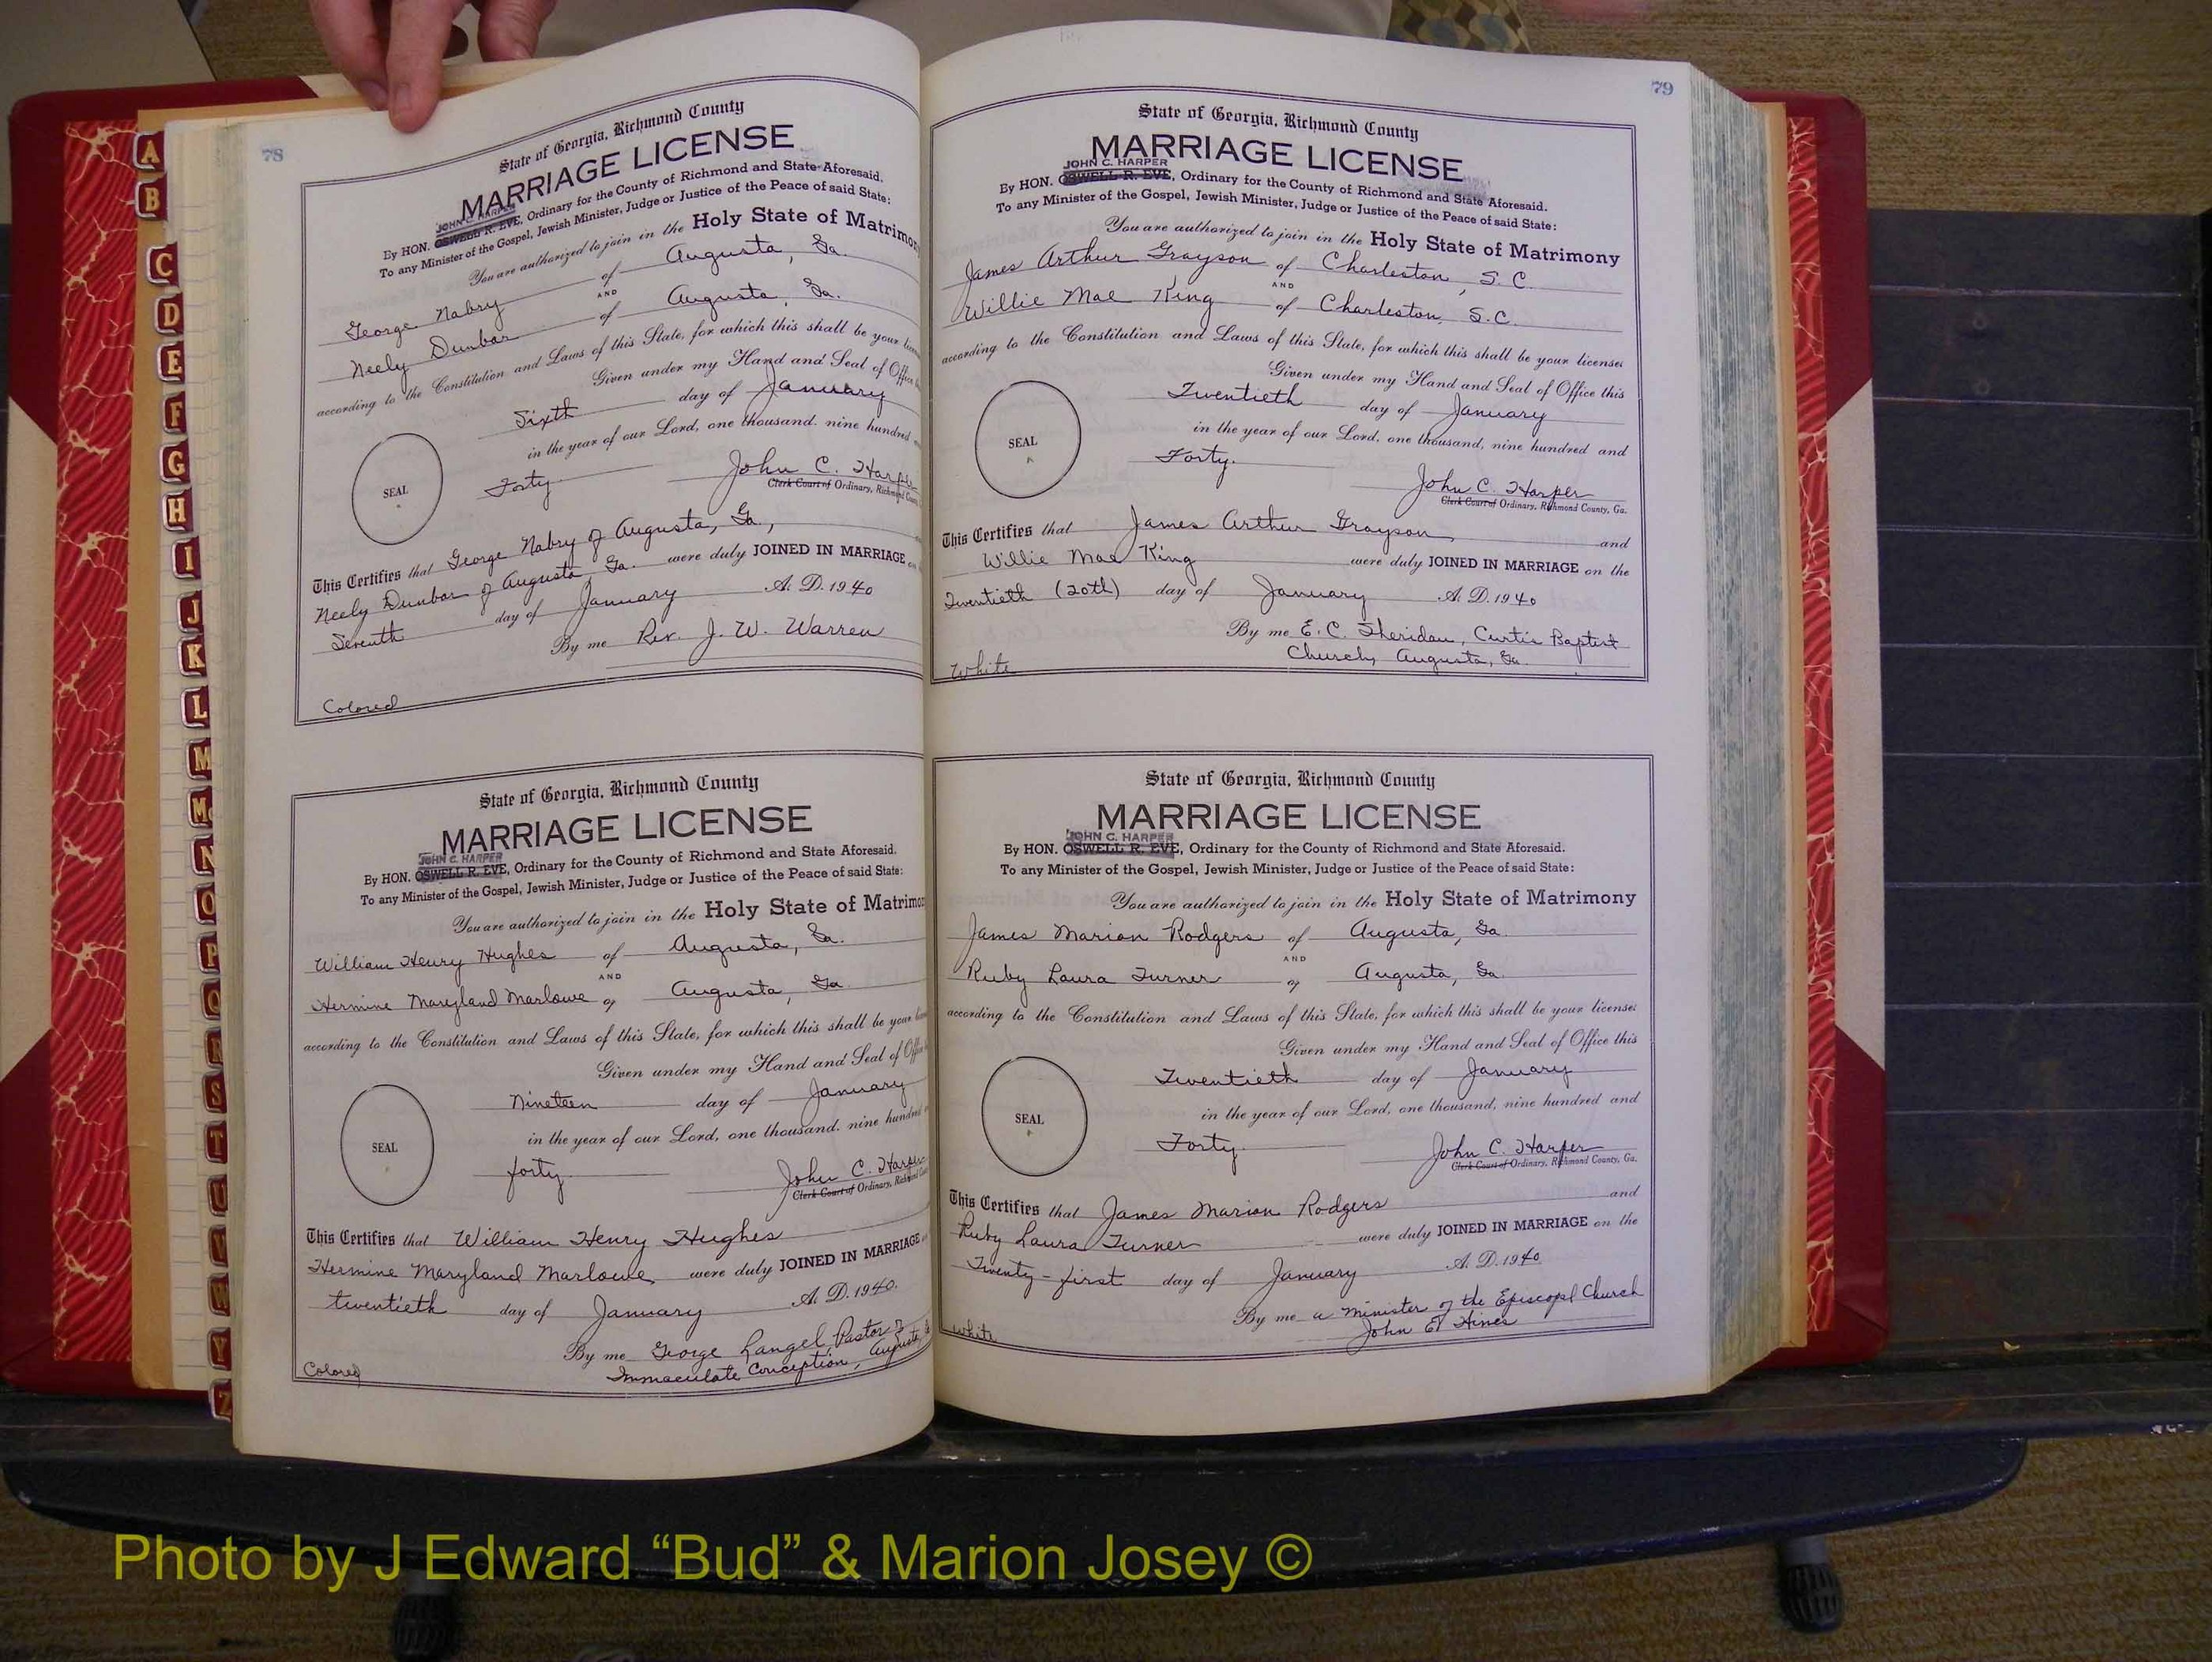 78
State of Georgia, Richmond County
MARRIAGE LICENSE
JOHN C. HARPER
By HON. OSWELL R. EVE, Ordinary for the County of Richmond and State Aforesaid.
To any Minister of the Gospel, Jewish Minister, Judge or Justice of the Peace of said State:
You are authorized to join in the Holy State of Matrimony
George Nabry of Augusta, Ga.
AND
Neely Dunbar of Augusta, Ga.
according to the Constitution and Laws of this State, for which this shall be your
Given under my Hand and Seal of Office
Sixth day of January
in the year of our Lord, one thousand, nine hundred
Forty
SEAL
John C. Harper
Clerk Court of Ordinary, Richmond
This Certifies that George Nabry of Augusta, Ga.,
Neely Dunbar of Augusta Ga. were duly JOINED IN MARRIAGE
Seventh day of January A. D. 1940
By me Rev. J. W. Warren
Colored
State of Georgia, Richmond County
MARRIAGE LICENSE
JOHN C. HARPER
By HON. OSWELL R. EVE, Ordinary for the County of Richmond and State Aforesaid.
To any Minister of the Gospel, Jewish Minister, Judge or Justice of the Peace of said State:
You are authorized to join in the Holy State of Matrimo
William Henry Hughes of Augusta, Ga.
AND
Hermine Maryland Marlowe of Augusta, Ga
according to the Constitution and Laws of this State, for which this shall be your
Given under my Hand and Seal of
Nineteen day of January
in the year of our Lord, one thousand, nine hundred
forty.
SEAL
John C. Harper
Clerk Court of Ordinary,
This Certifies that William Henry Hughes
Hermine Maryland Marlowe were duly JOINED IN MARRIAGE
twentieth day of January A. D. 1940.
By me George Langel, Pastor of
Immaculate Conception, Augusta
Colored
79
State of Georgia, Richmond County
MARRIAGE LICENSE
JOHN C. HARPER
By HON. OSWELL R. EVE, Ordinary for the County of Richmond and State Aforesaid.
To any Minister of the Gospel, Jewish Minister, Judge or Justice of the Peace of said State:
You are authorized to join in the Holy State of Matrimony
James Arthur Grayson of Charleston, S. C.
AND
Willie Mae King of Charleston, S.C.
according to the Constitution and Laws of this State, for which this shall be your license:
Given under my Hand and Seal of Office this
Twentieth day of January
in the year of our Lord, one thousand, nine hundred and
Forty.
SEAL
John C. Harper
Clerk Court of Ordinary, Richmond County, Ga.
This Certifies that James Arthur Grayson, and
Willie Mae King were duly JOINED IN MARRIAGE on the
Twentieth (20th) day of January A. D. 1940
By me E. C. Sheridan, Curtis Baptist
Church, Augusta, Ga.
White
State of Georgia, Richmond County
MARRIAGE LICENSE
JOHN C. HARPER
By HON. OSWELL R. EVE, Ordinary for the County of Richmond and State Aforesaid.
To any Minister of the Gospel, Jewish Minister, Judge or Justice of the Peace of said State:
You are authorized to join in the Holy State of Matrimony
James Marion Rodgers of Augusta, Ga.
AND
Ruby Laura Turner of Augusta, Ga.
according to the Constitution and Laws of this State, for which this shall be your license:
Given under my Hand and Seal of Office this
Twentieth day of January
in the year of our Lord, one thousand, nine hundred and
Forty.
SEAL
John C. Harper
Clerk Court of Ordinary, Richmond County, Ga.
This Certifies that James Marion Rodgers and
Ruby Laura Turner were duly JOINED IN MARRIAGE on the
Twenty-first day of January A. D. 1940
By me a Minister of the Episcopl Church
John E Hines
White
A
B
C
D
E
F
G
H
I
J
K
L
M
Mc
N
O
P
Q
R
S
T
U
V
W
Y
Z
Photo by J Edward “Bud” & Marion Josey ©